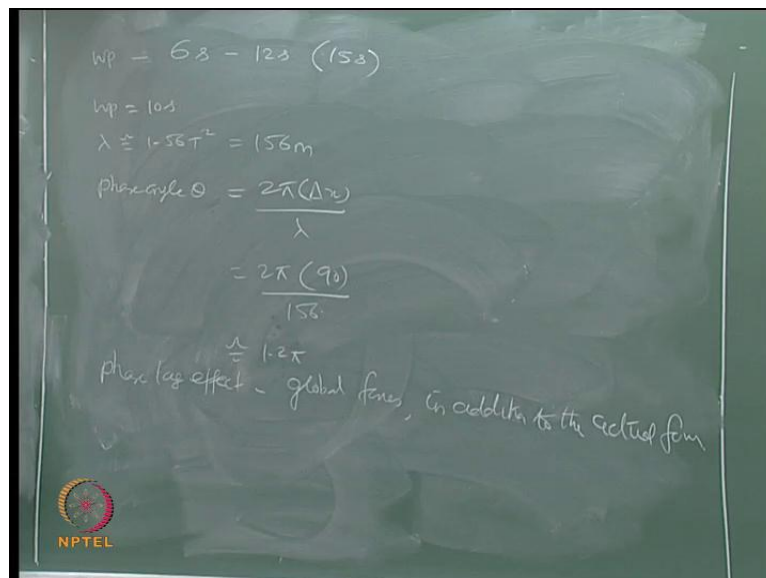 wp = 6s - 12s (15s)
wp = 10s
λ ≅ 1.56T² = 156m
phase angle θ = 2π(Δx)
λ
= 2π (90)
156
≅ 1.2π
phase lag effect - global forces, in addition to the actual form
NPTEL